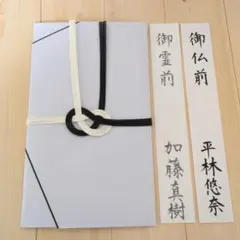 御仏前
平林悠奈
御霊前
加藤真樹